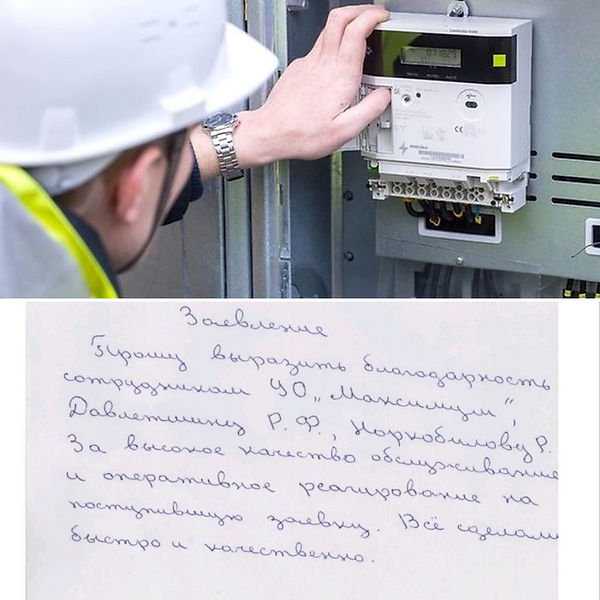 Заявление
Прошу выразить благодарность
сотрудникам УО „Максимум",
Давлетшину Р. Ф., Норкобилову Р.
За высокое качество обслуживание
и оперативное реагирование на
поступившую заявку. Всё сделали
быстро и качественно.